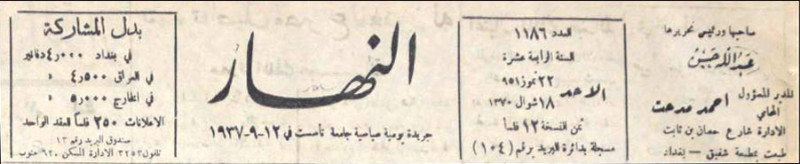 صاحبها ورئيس تحريرها
عبدالله حسن
المدير المسؤول
المحامي احمد مدحت
الادارة شارع حسان بن ثابت
طبعت بمطبعة شفيق - بغداد
العدد ١١٨٦
السنة الرابعة عشرة
الاحد
٢٢ تموز ٩٥١
١٨ شوال ١٣٧٠
ثمن النسخة ١٢ فلساً
مسجلة بدائرة البريد برقم (١٠٤)
النهار
جريدة يومية سياسية جامعة تأسست في ١٢-٩-١٩٣٧
بدل المشاركة
في بغداد ٤٫٠٠٠ دنانير
في العراق ٤٫٥٠٠ »
في الخارج ٥٫٠٠٠ »
الاعلانات ٢٥٠ فلساً للعقد الواحد
صندوق البريد رقم ١٣
تلفون ٣٢٥٣ الادارة السكن ٩٢٠ جنوب